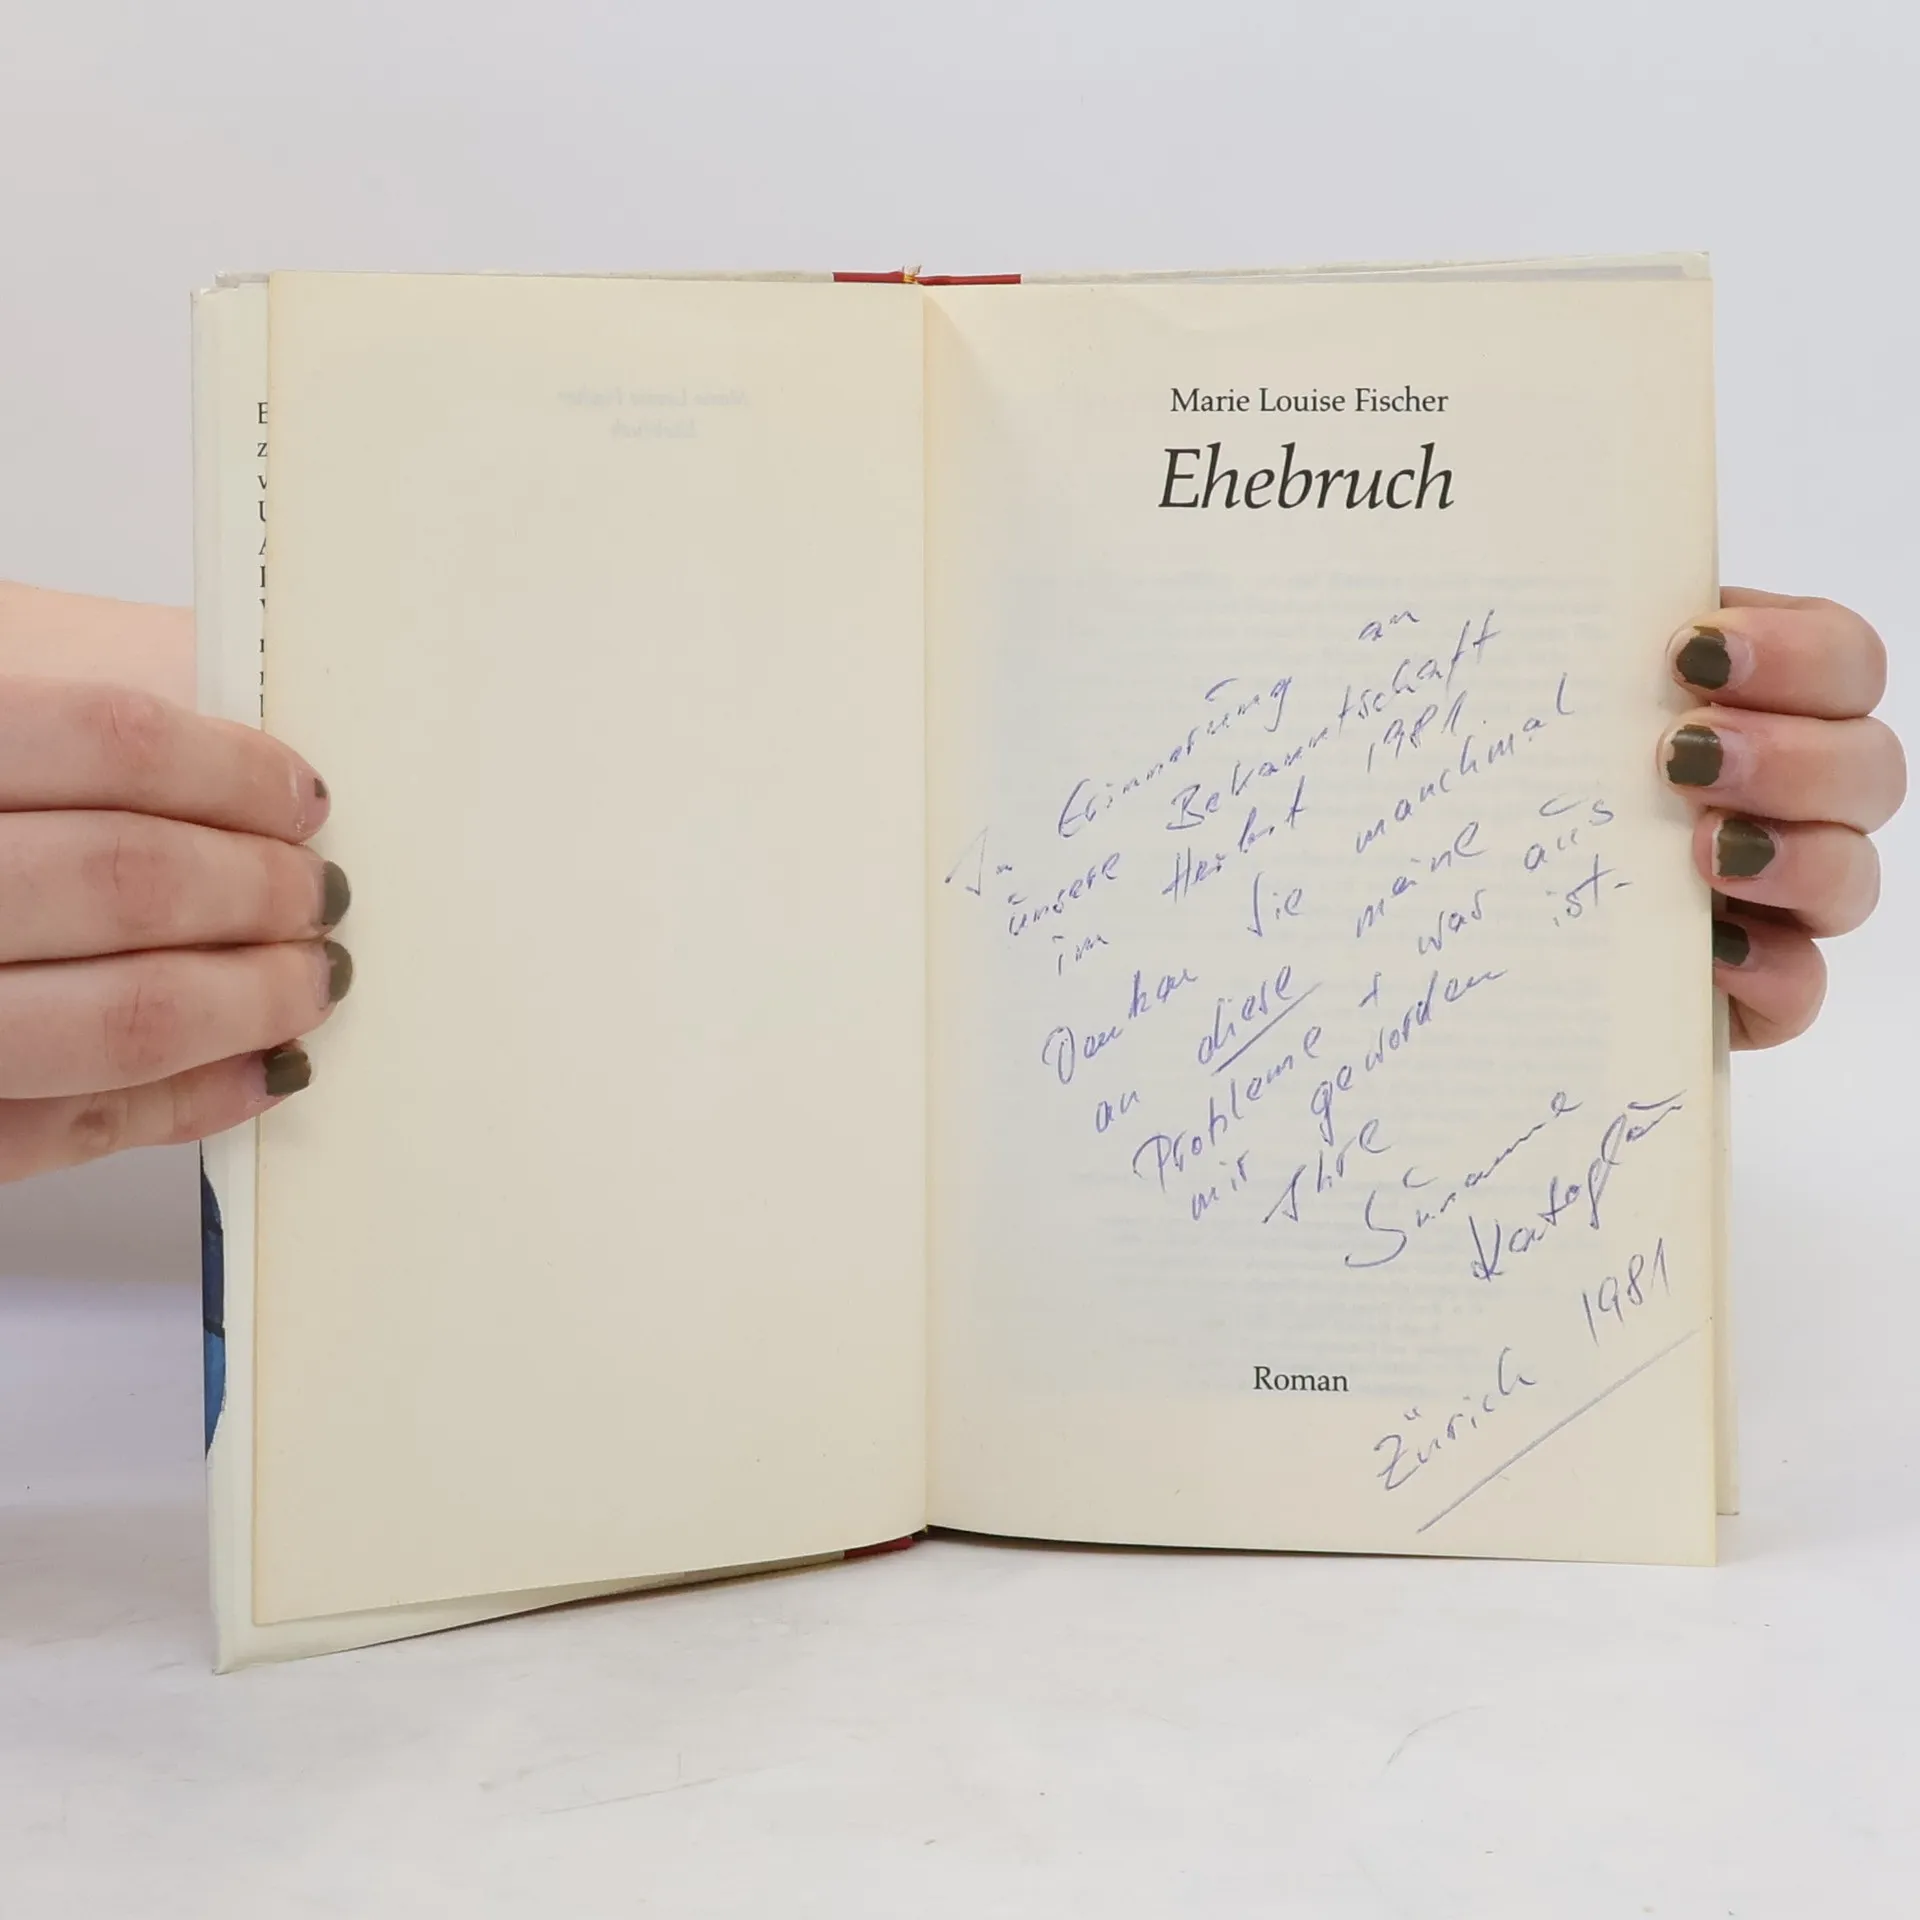 E
z
v
U
A
Marie Louise Fischer
Ehebruch
In Erinnerung an
unsere Bekanntschaft
im Herbst 1981.
Denken Sie manchmal
an diese meine
Probleme + was aus
mir geworden ist.-
Ihre
Susanne
Zürich 1981
Roman